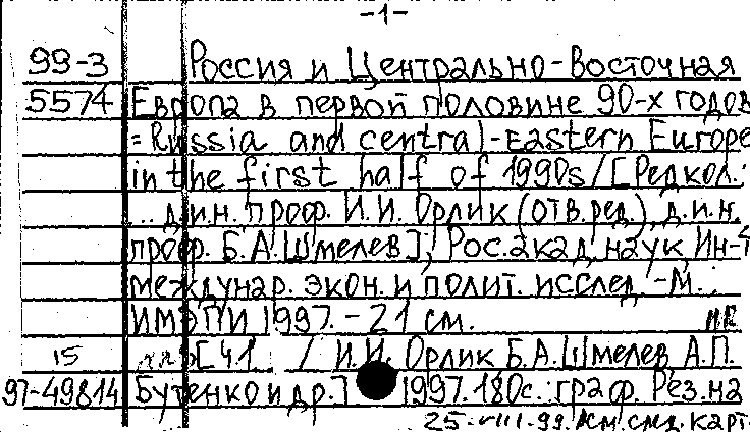 -1-
99-3 Россия и Центрально-Восточная
5574 Европа в первой половине 90-х годов
= Russia and central-eastern Europe
in the first half of 1990s / [Редкол.:
... д.и.н. проф. И.И. Орлик (отв.ред.), д.и.н.
проф. Б.А. Шмелев]; Рос.акад.наук, Ин-т
междунар. экон. и полит. исслед. -М.:
ИМЭПИ 1997. - 21 см.
15 [Ч1 / И.И. Орлик Б.А. Шмелев А.П.
97-49814 Бутенко и др.] 1997. 180с.: граф. Рез.на
25-VIII-99. см. след. карт